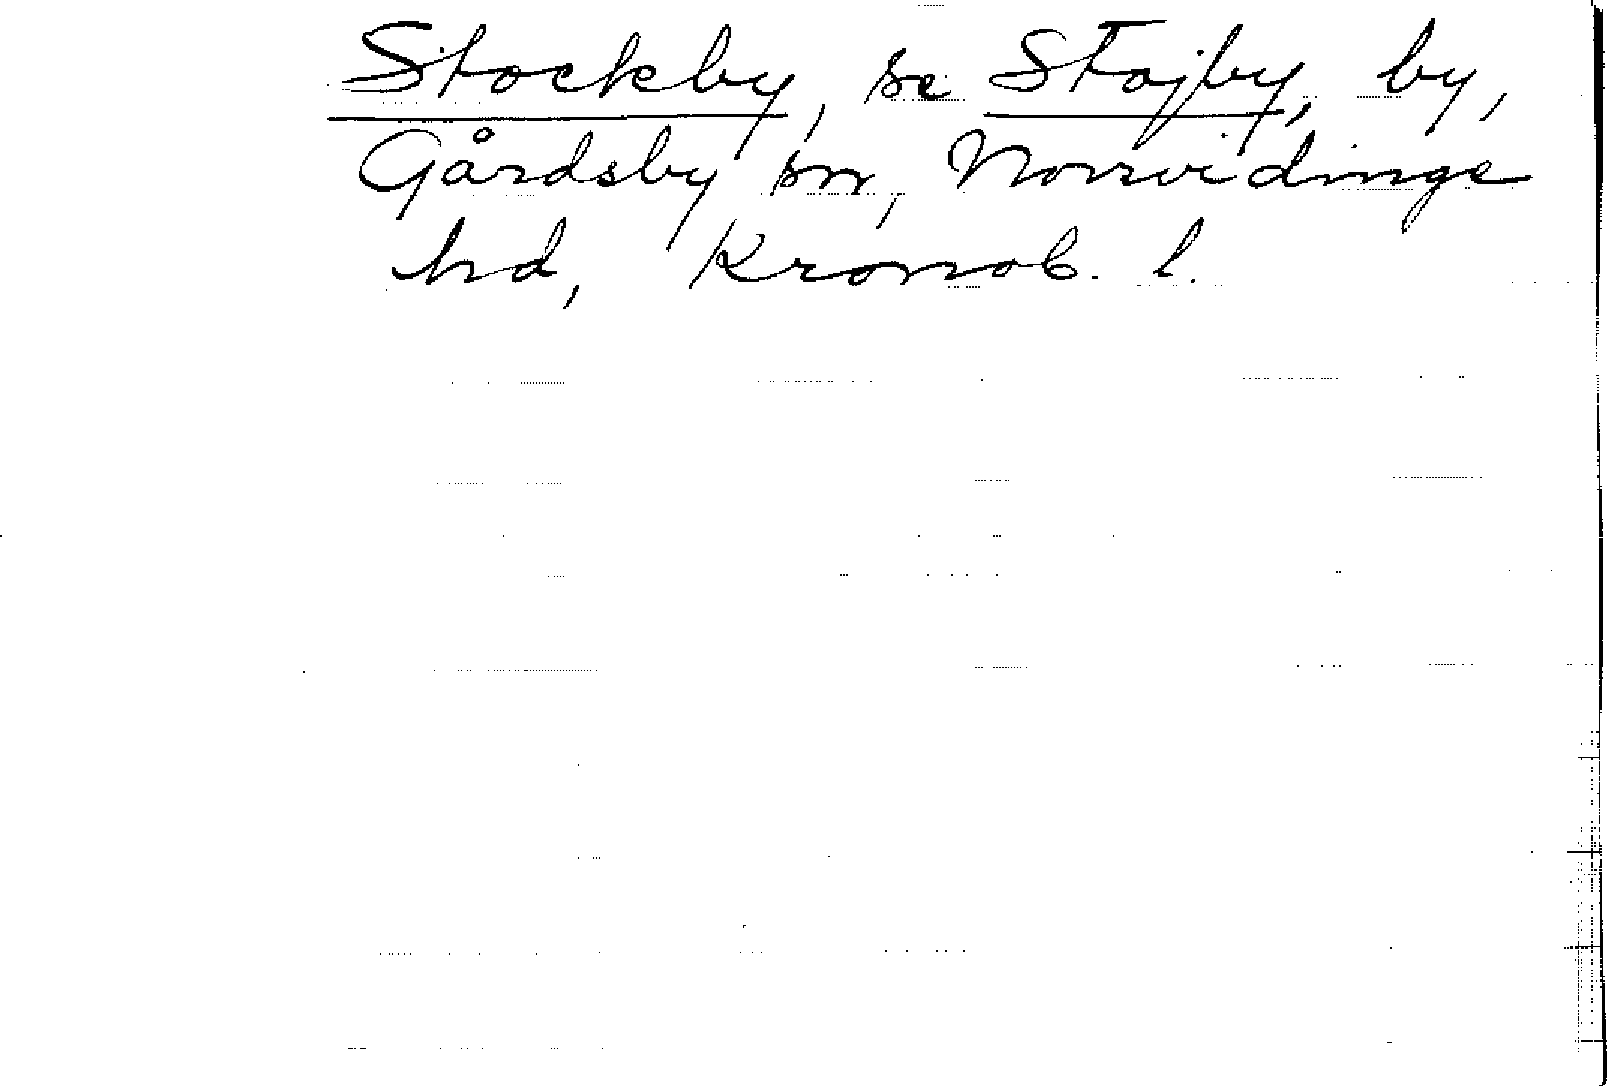 Stockby, se Stojby, by,
Gårdsby sn, Norrvidinge
hd, Kronob. l.